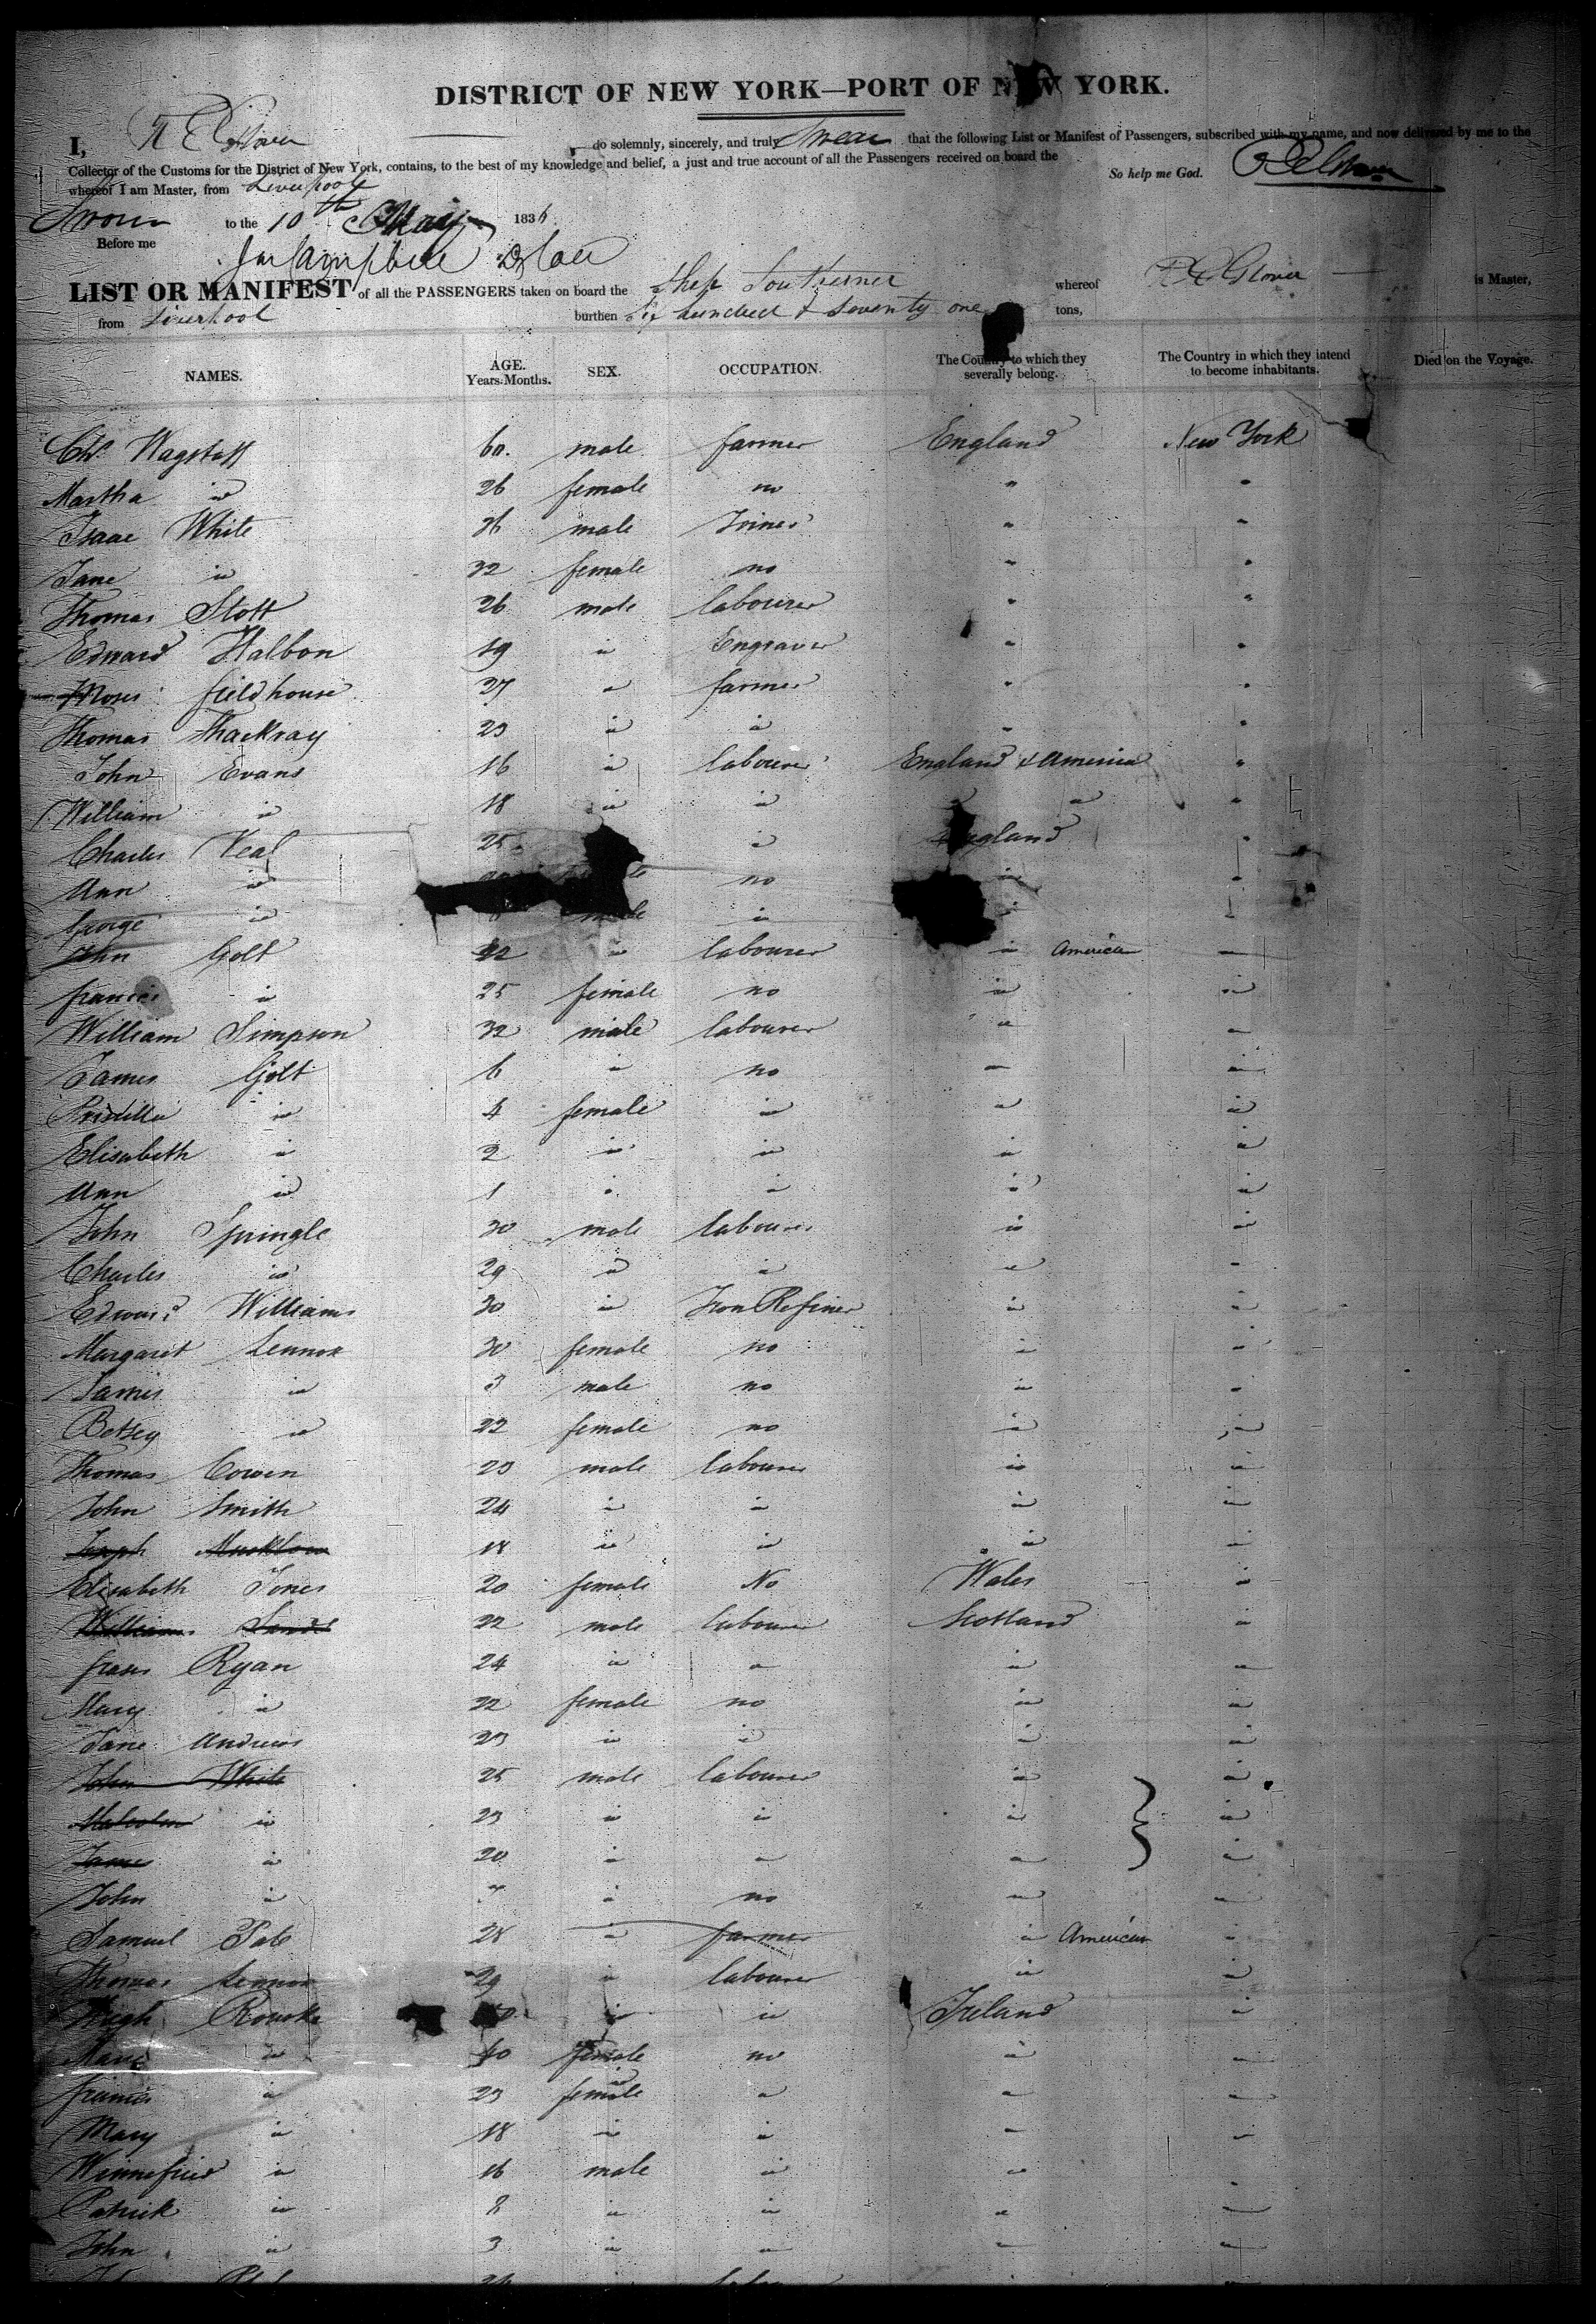 DISTRICT OF NEW YORK—PORT OF N W YORK.
I, R E Glover do solemnly, sincerely, and truly Swear that the following List or Manifest of Passengers, subscribed with my name, and now delivered by me to the
Collector of the Customs for the District of New York, contains, to the best of my knowledge and belief, a just and true account of all the Passengers received on board the
whereof I am Master, from Liverpool So help me God.
Sworn to the 10th May 1836
Before me
LIST OR MANIFEST of all the PASSENGERS taken on board the Ship Southerner whereof R E Glover is Master,
from Liverpool burthen Six hundred & Seventy one tons,
NAMES. AGE. Years. Months. SEX. OCCUPATION. The Country to which they severally belong. The Country in which they intend to become inhabitants. Died on the Voyage.
Chs. Wagstaff 60. male farmer England New York
Martha " 26 female no " "
Isaac White 36 male Joiner " "
Jane " 32 female no " "
Thomas Stott 26 male labourer " "
Edward Halbon 19 " Engraver " "
Moses fieldhouse 27 " farmer " "
Thomas Thackray 23 " " " "
John Evans 16 " labourer England & America "
William " 18 " " " " "
Charles Veal 25 " England "
Ann " no " "
George " male " " "
John Golt 22 " labourer " American "
frances " 25 female no " "
William Simpson 32 male labourer " "
James Golt 6 " no " "
Priscilla " 4 female " " "
Elisabeth " 2 " " " "
Ann " 1 " " " "
John Springle 30 male labourer " "
Charles " 29 " " " "
Edward Williams 30 " Iron Refiner " "
Margaret Lennox 30 female no " "
James " 3 male no " "
Betsey " 22 female no " "
Thomas Cowen 23 male labourer " "
John Smith 24 " " " "
Joseph 18 " " " "
Elisabeth Jones 20 female No Wales "
William 22 male labourer Scotland "
Ryan 24 " " " "
Mary " 22 female no " "
Jane Andrews 23 " " " "
John White 25 male labourer " "
Malcolm " 23 " " " "
James " 20 " " " "
John " " no " "
Samuel Pate 28 " farmer " American "
Thomas Lennox 29 " labourer " "
Hugh Rourke " " Ireland "
" 40 female no " "
frances " 23 female " " "
Mary " 18 " " " "
Winnefried " 16 male " " "
Patrick " 8 " " " "
John " 3 " " " "